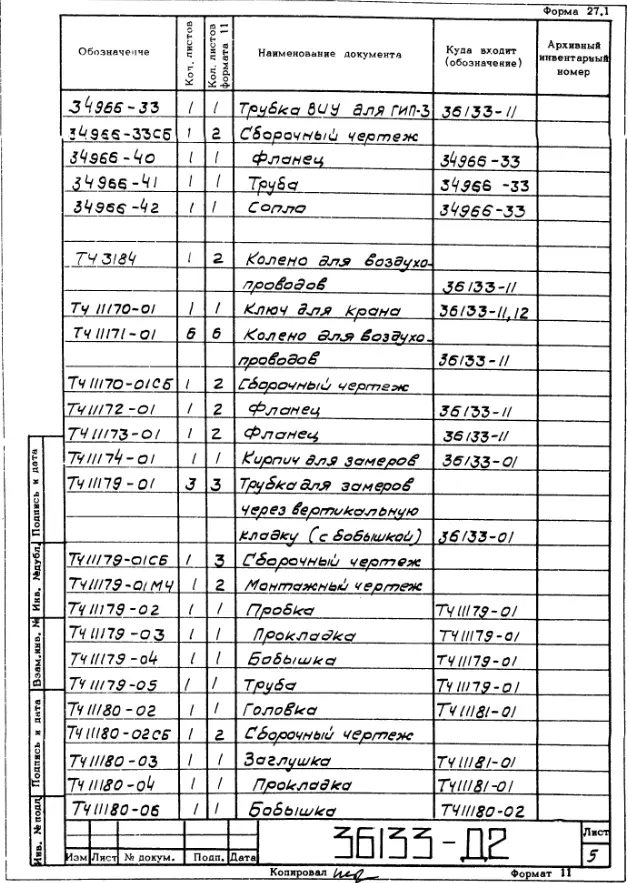 Форма 27.1
Обозначение Кол. листов Кол. листов формата 11 Наименование документа Куда входит (обозначение) Архивный инвентарный номер
34966-33 1 1 Трубка ВИУ для ГИП-3 36133-11
34966-33СБ 1 2 Сборочный чертеж
34966-40 1 1 Фланец 34966-33
34966-41 1 1 Труба 34966-33
34966-42 1 1 Сопло 34966-33
ТЧ 3184 1 2 Колено для воздухо-
проводов 36133-11
ТЧ 11170-01 1 1 Ключ для крана 36133-11,12
ТЧ 11171-01 6 6 Колено для воздухо-
проводов 36133-11
ТЧ 11170-01СБ 1 2 Сборочный чертеж
ТЧ 11172-01 1 2 Фланец 36133-11
ТЧ 11173-01 1 2 Фланец 36133-11
ТЧ 11174-01 1 1 Кирпич для замеров 36133-01
ТЧ 11179-01 3 3 Трубка для замеров
через вертикальную
кладку (с бобышкой) 36133-01
ТЧ 11179-01СБ 1 3 Сборочный чертеж
ТЧ 11179-01МЧ 1 2 Монтажный чертеж
ТЧ 11179-02 1 1 Пробка ТЧ 11179-01
ТЧ 11179-03 1 1 Прокладка ТЧ 11179-01
ТЧ 11179-04 1 1 Бобышка ТЧ 11179-01
ТЧ 11179-05 1 1 Труба ТЧ 11179-01
ТЧ 11180-02 1 1 Головка ТЧ 11181-01
ТЧ 11180-02СБ 1 2 Сборочный чертеж
ТЧ 11180-03 1 1 Заглушка ТЧ 11181-01
ТЧ 11180-04 1 1 Прокладка ТЧ 11181-01
ТЧ 11180-06 1 1 Бобышка ТЧ 11180-02
Инв. № подл.
Подпись и дата
Взам.инв. №
Инв. №дубл.
Подпись и дата
Изм Лист № докум. Подп. Дата
36133-Д2
Лист
5
Копировал
Формат 11